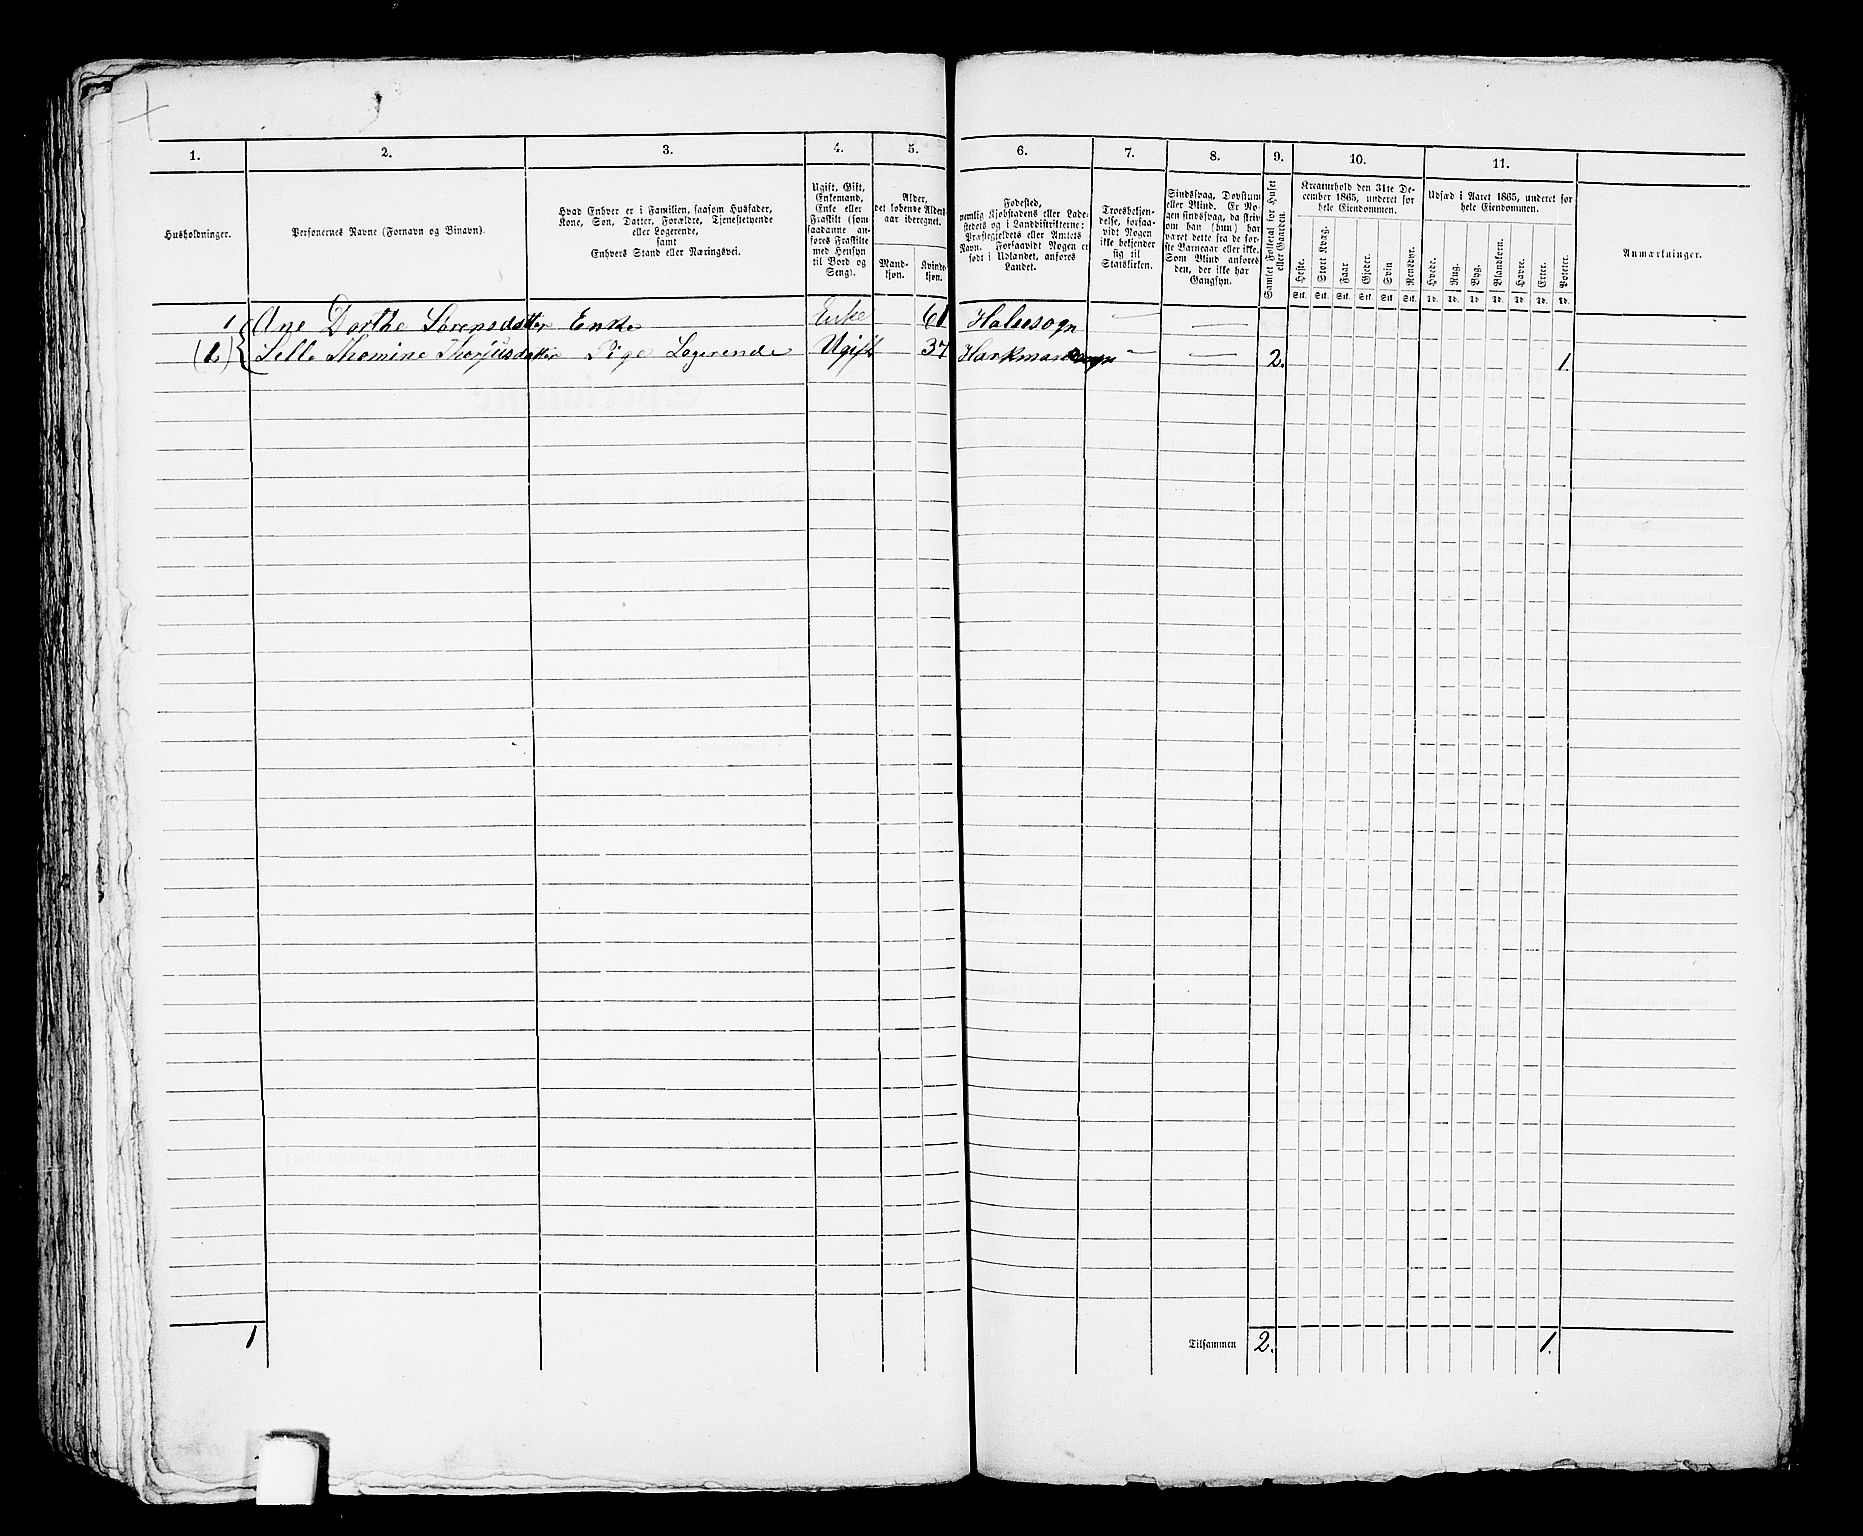 1. 2. 3. 4. 5. 6. 7. 8. 9. 10. 11.
Husholdninger.
Personernes Navne (Fornavn og Binavn).
Hvad Enhver er i Familien, saasom Husfader,
Kone, Søn, Datter, Forældre, Tjenestetyende
eller Logerende,
samt
Enhvers Stand eller Næringsvei.
Ugift, Gift,
Enkemand,
Enke eller
Fraskilt (som
saadanne an-
føres Fraskilte
med Hensyn
til Bord og
Seng).
Alder,
det løbende Alders-
aar iberegnet.
Mand-
kjøn.
Kvinde-
kjøn.
Fødested,
nemlig Kjøbstadens eller Lade-
stedets og i Landdistrikterne:
Præstegjeldets eller Amtets
Navn. Forsaavidt Nogen er
født i Udlandet, anføres
Landet.
Troesbekjen-
delse, forsaa-
vidt Nogen
ikke bekjender
sig til
Statskirken.
Sindssvag, Døvstum
eller Blind. Er No-
gen sindssvag, da skriv
om han (hun) har
været dette fra de før-
ste Barneaar eller ikke.
Som Blind anføres
den, der ikke har
Gangsyn.
Samlet Folketal for Huset
eller Gaarden.
Kreaturhold den 31te De-
cember 1865, underet for
hele Eiendommen.
Heste. Stort Kvæg. Faar. Gjeder. Svin Rensdyr.
Stk. Stk. Stk. Stk. Stk. Stk.
Udsæd i Aaret 1865, underet for
hele Eiendommen.
Hvede. Rug. Byg. Blandkorn. Havre. Erter. Poteter.
Td. Td. Td. Td. Td. Td. Td.
Anmærkninger.
1 Ane Dorthe Sørensdatter Enke Enke 61 Halsesogn — —
Thomine Pige Logerende Ugift 37 — — 2. 1.
1 Tilsammen 2. 1.